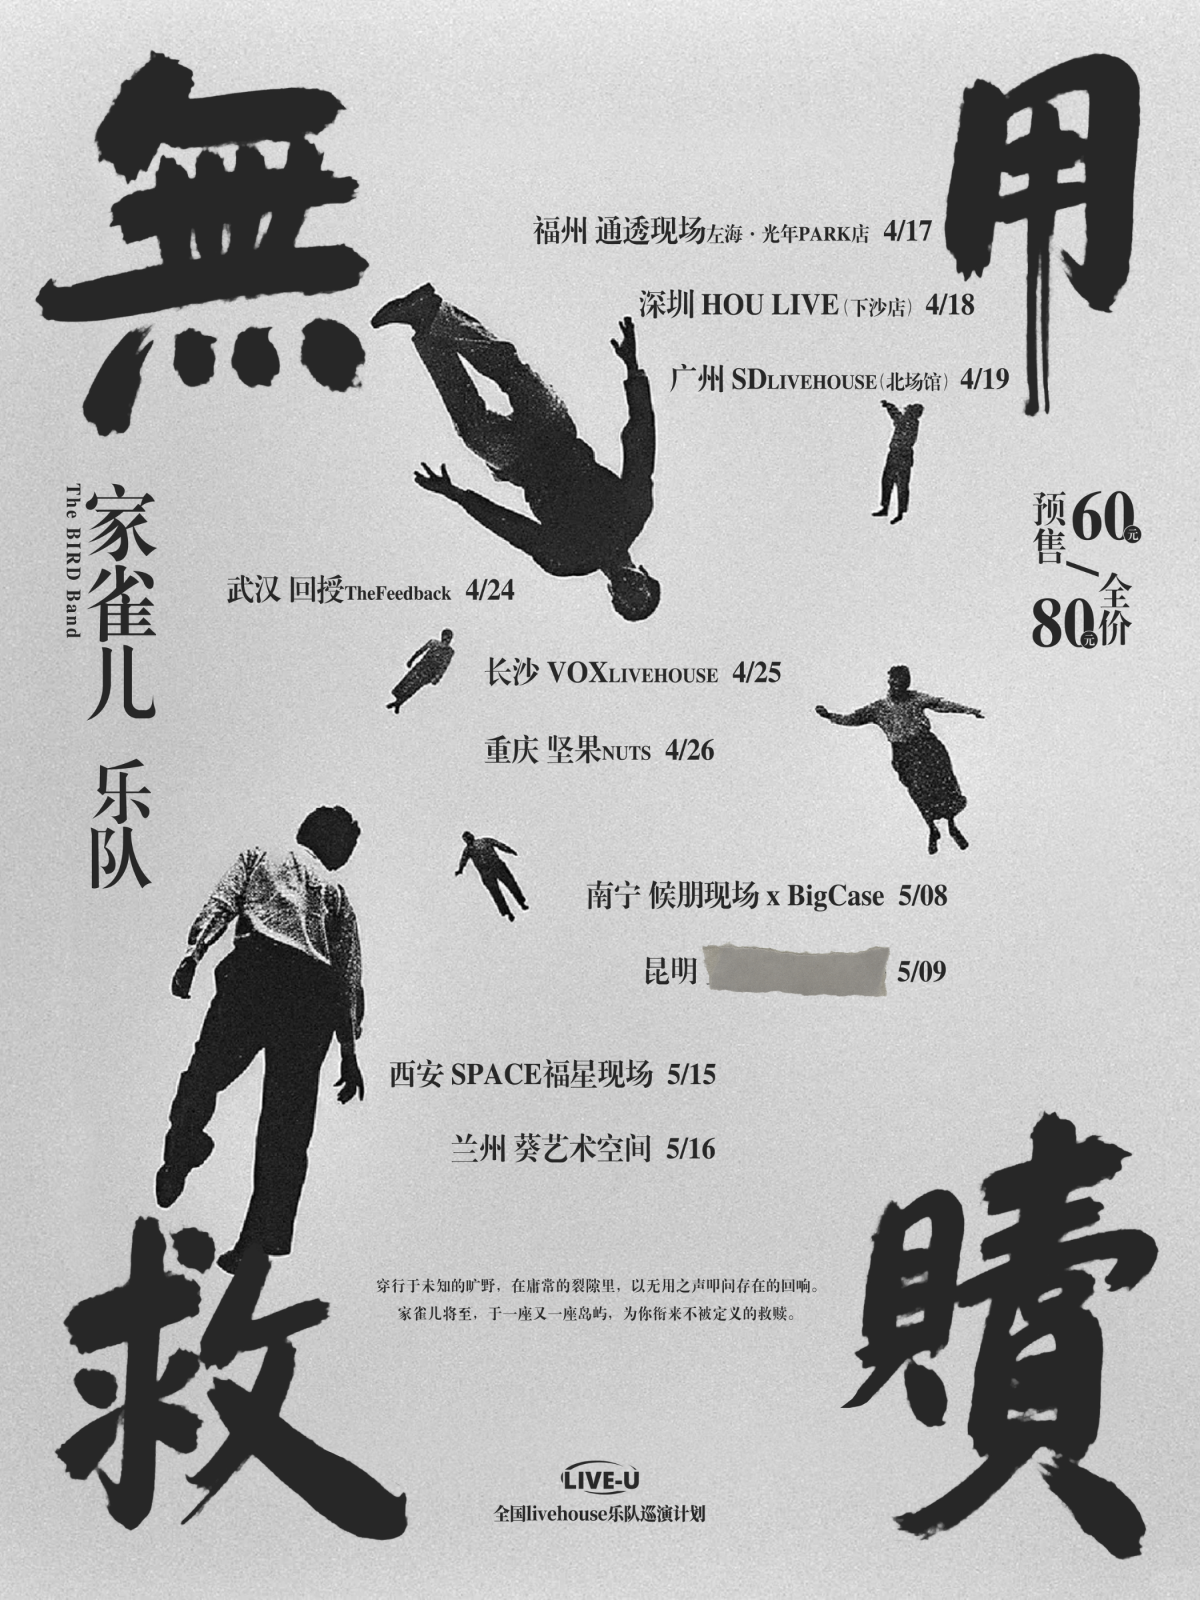 無用
福州 通透现场左海·光年PARK店 4/17
深圳 HOU LIVE(下沙店) 4/18
广州 SDLIVEHOUSE(北场馆) 4/19
家雀儿 乐队
The BIRD Band
预售60元
全价80元
武汉 回授TheFeedback 4/24
长沙 VOXLIVEHOUSE 4/25
重庆 坚果NUTS 4/26
南宁 候朋现场 x BigCase 5/08
昆明 5/09
西安 SPACE福星现场 5/15
兰州 葵艺术空间 5/16
救贖
穿行于未知的旷野，在庸常的裂隙里，以无用之声叩问存在的回响。
家雀儿将至，于一座又一座岛屿，为你衔来不被定义的救赎。
LIVE-U
全国livehouse乐队巡演计划